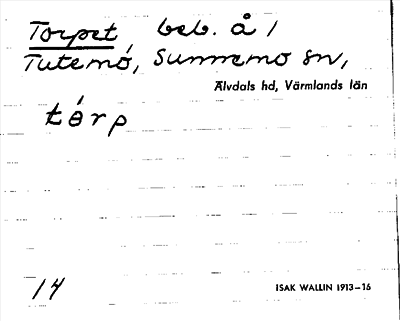 Torpet, beb. å 1
Tutemo, Sunnemo sn,
Älvdals hd, Värmlands län
tórp
14
ISAK WALLIN 1913–16